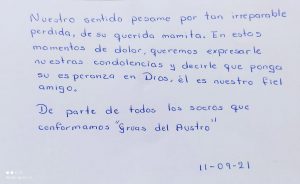 Nuestro sentido pesame por tan irreparable
perdida, de su querida mamita. En estos
momentos de dolor, queremos expresarle
nuestras condolencias y decirle que ponga
su esperanza en Dios, él es nuestro fiel
amigo.
De parte de todos los socios que
conformamos "Gruas del Austro"
11-09-21